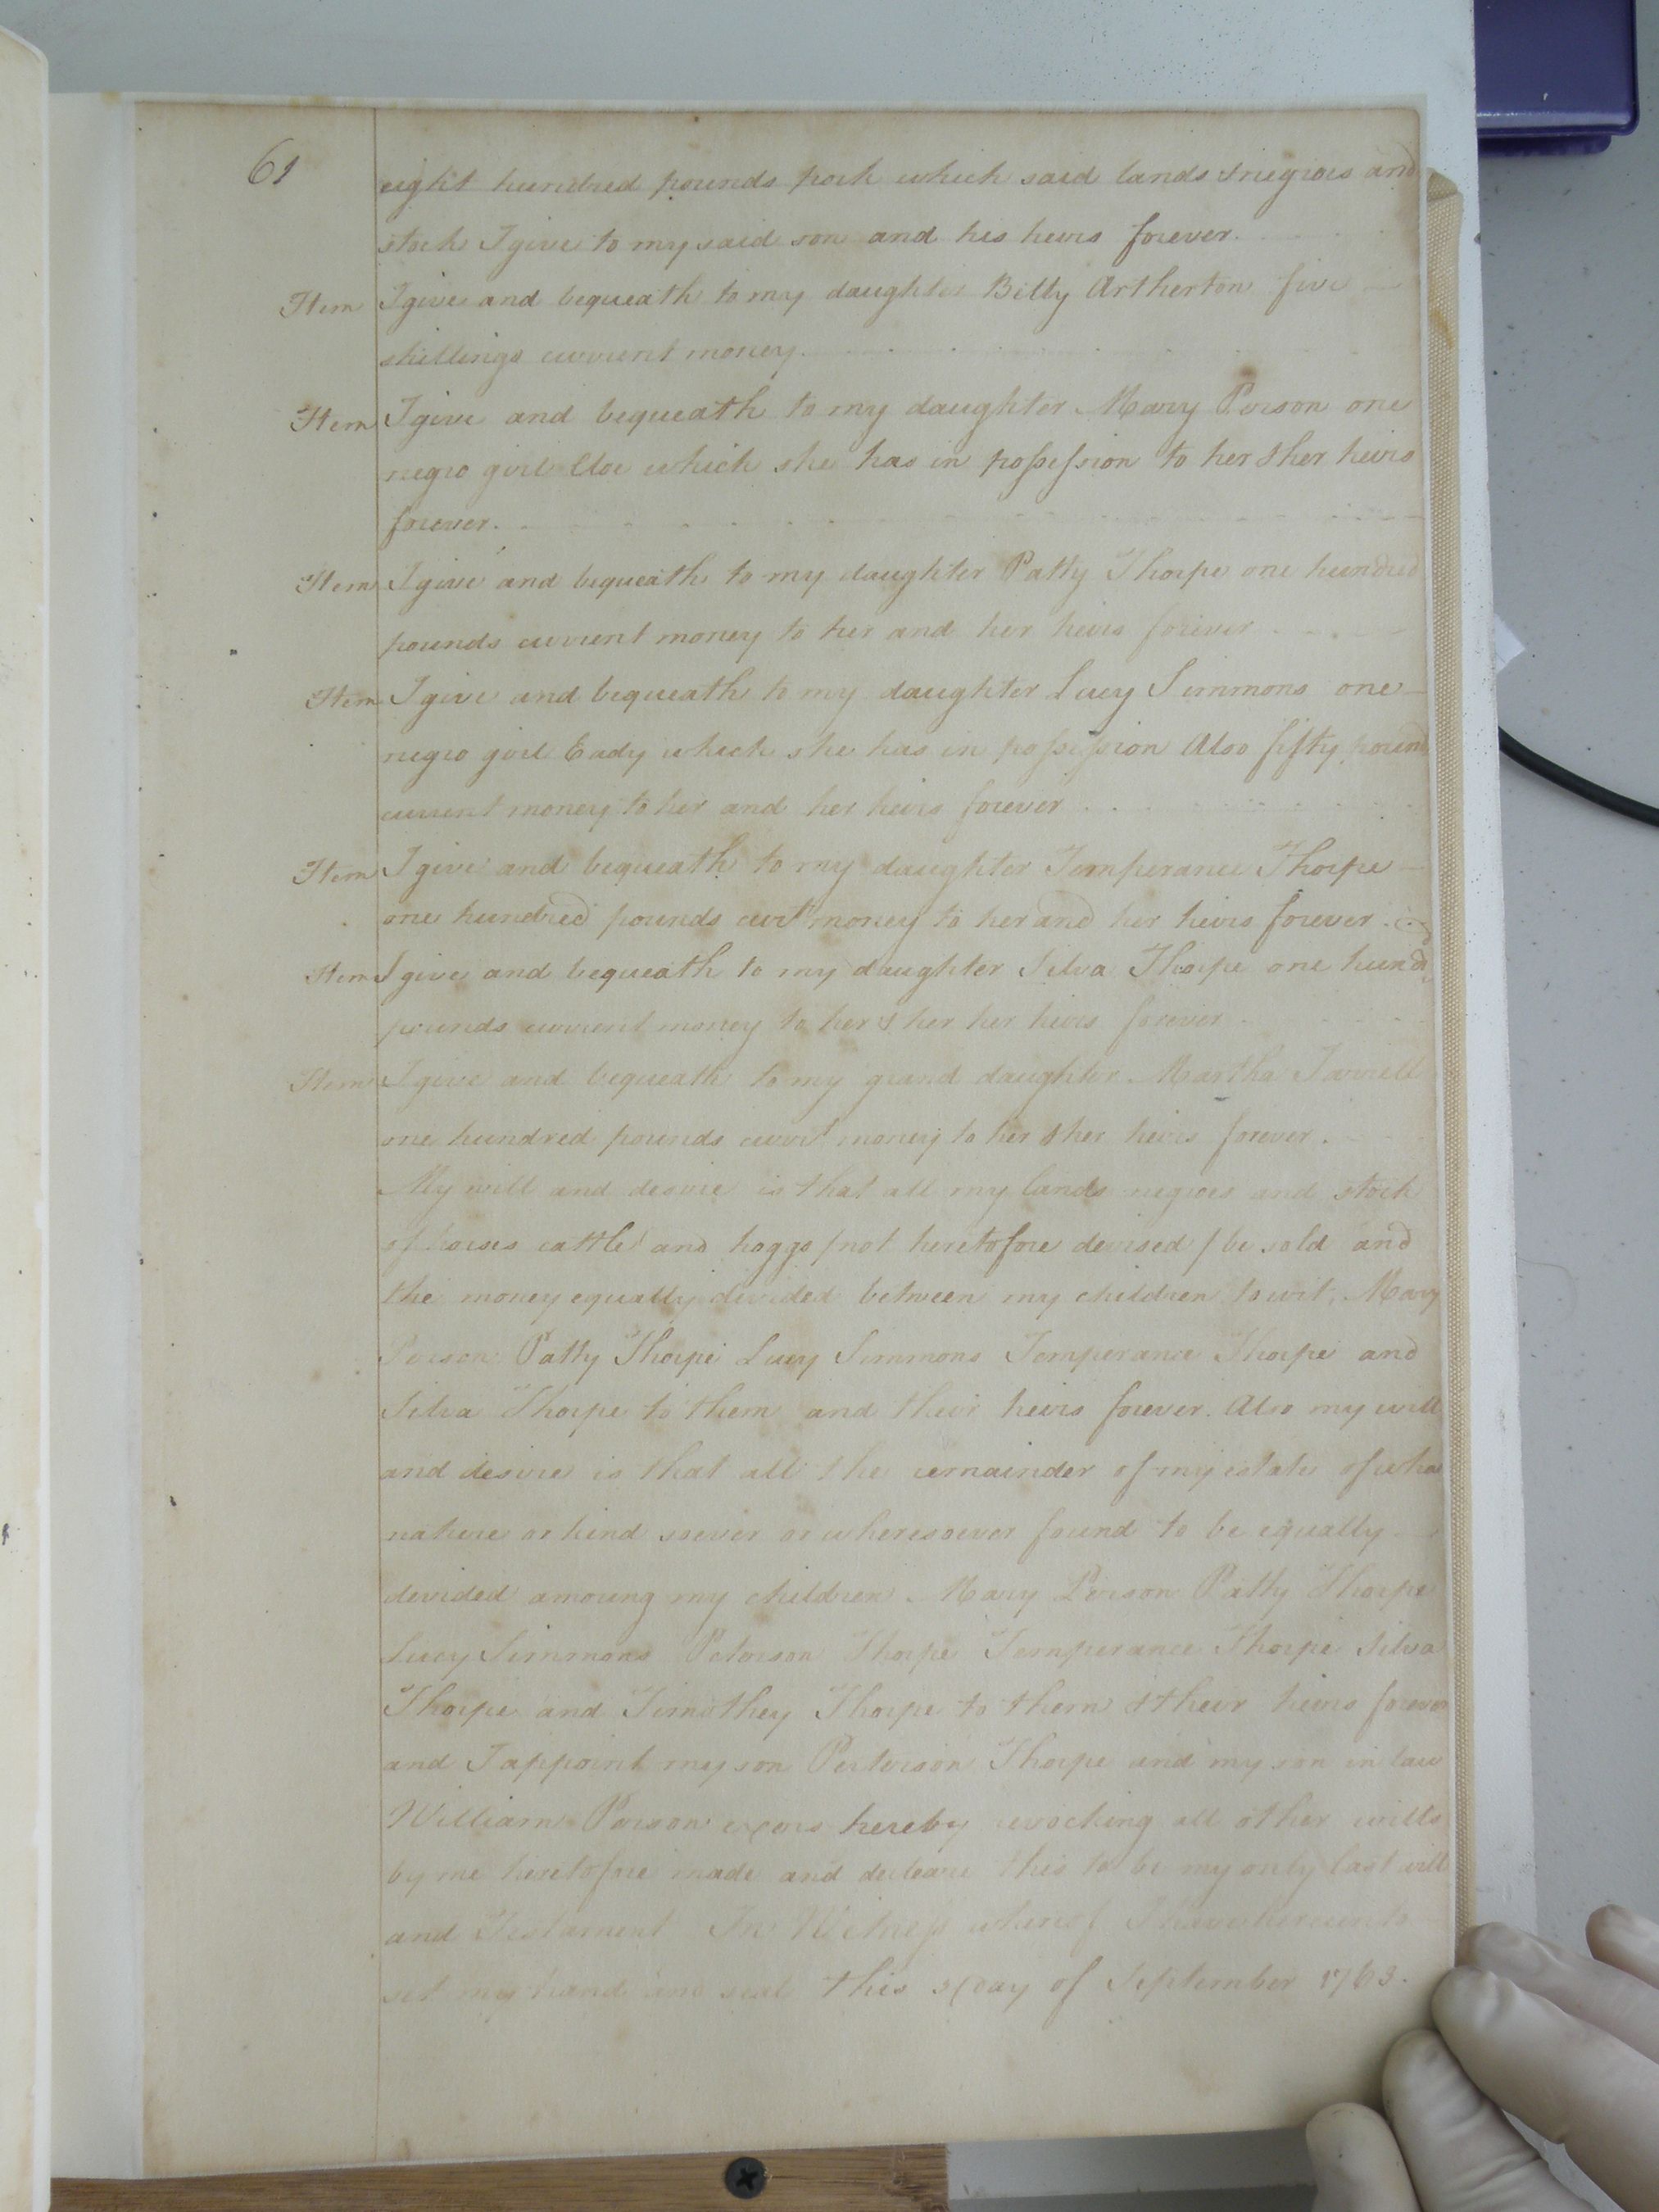 61
eight hundred pounds pork which said lands & negroes and
stock I give to my said son and his heirs forever.
Item I give and bequeath to my daughter Billy Artherton five
shillings current money.
Item I give and bequeath to my daughter Mary Person one
negro girl Cloe which she has in possession to her & her heirs
forever.
Item I give and bequeath to my daughter Patty Thorpe one hundred
pounds current money to her and her heirs forever
Item I give and bequeath to my daughter Lucy Simmons one
negro girl Eady which she has in possession Also fifty pound
current money to her and her heirs forever
Item I give and bequeath to my daughter Temperance Thorpe
one hundred pounds curt money to her and her heirs forever.
Item I give and bequeath to my daughter Silva Thorpe one hund
pounds current money to her & her her heirs forever
Item I give and bequeath to my grand daughter Martha Jarrell
one hundred pounds currt money to her & her heirs forever.
My will and desire is that all my lands negroes and stock
of horses cattle and hoggs / not heretofore devised / be sold and
the money equally divided between my children to wit, Mary
Person Patty Thorpe Lucy Simmons Temperance Thorpe and
Silva Thorpe to them and their heirs forever. Also my will
and desire is that all the remainder of my estate of wha
nature or kind soever or wheresoever found to be equally
devided amoung my children Mary Person Patty Thorpe
Lucy Simmons Peterson Thorpe Temperance Thorpe Silva
Thorpe and Timothey Thorpe to them & their heirs forever
and I appoint my son Perterson Thorpe and my son in law
William Person exors hereby revocking all other wills
by me heretofore made and decleare this to be my only last will
and Testament In Witness whereof I have hereunto
set my hand and seal this day of September 1763.